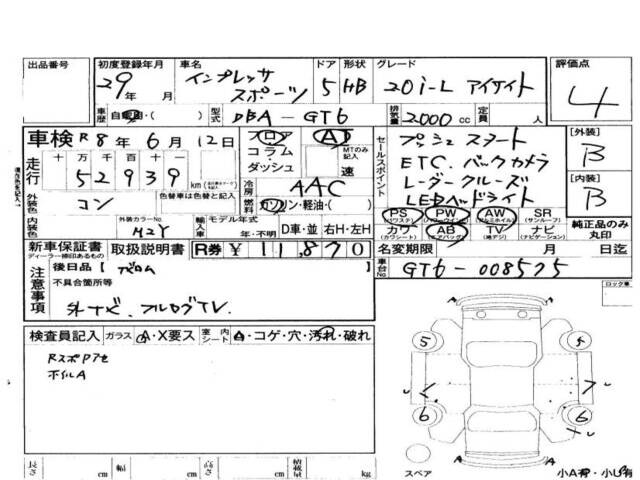 出品番号 初度登録年月 車名 ドア 形状 グレード 評価点
29年 月 インプレッサ スポーツ 5 HB 20i-L アイサイト 4
車歴 自家用・( ) 型式 DBA-GT6 排気量 2000 cc 定員 人
車検 R8年6月12日 フロア コラム・ダッシュ A MTのみ記入 速
セールスポイント プッシュスタート
ETC.バックカメラ
レーダークルーズ
LEDヘッドライト
[外装] B
[内装] B
走行 十 万 千 百 十 一
52939 km
冷房 AAC
外装色 コン 色替車は色替と記入
燃料 ガソリン・軽油・( )
内装色 外装カラーNo. M2Y 輸入車 モデル年式 年・不明 D車・並 右H・左H
PS (パワステ) PW (パワーウインド) AW (アルミホイル) SR (サンルーフ)
カワ (カワシート) AB (エアバッグ) TV (地デジ) ナビ (ナビゲーション)
純正品のみ丸印
新車保証書 ディーラー捺印あるもの 取扱説明書 R券 ¥11,870
名変期限 月 日迄
車台No. GT6-008575
注意事項 後日品【
不具合箇所等
外ナビ.フルセグTV.
ロック車
検査員記入 ガラス A・X要ス 室内 シート A・コゲ・穴・汚れ・破れ
RスポPアセ
ホイルA
5 6 6 7 A A
スペア
小A有・小U有
長さ cm 幅 cm 高さ cm 積載量 kg